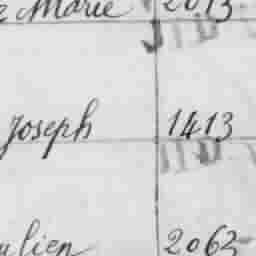 Marie 2013
Joseph 1413
ulien 2063